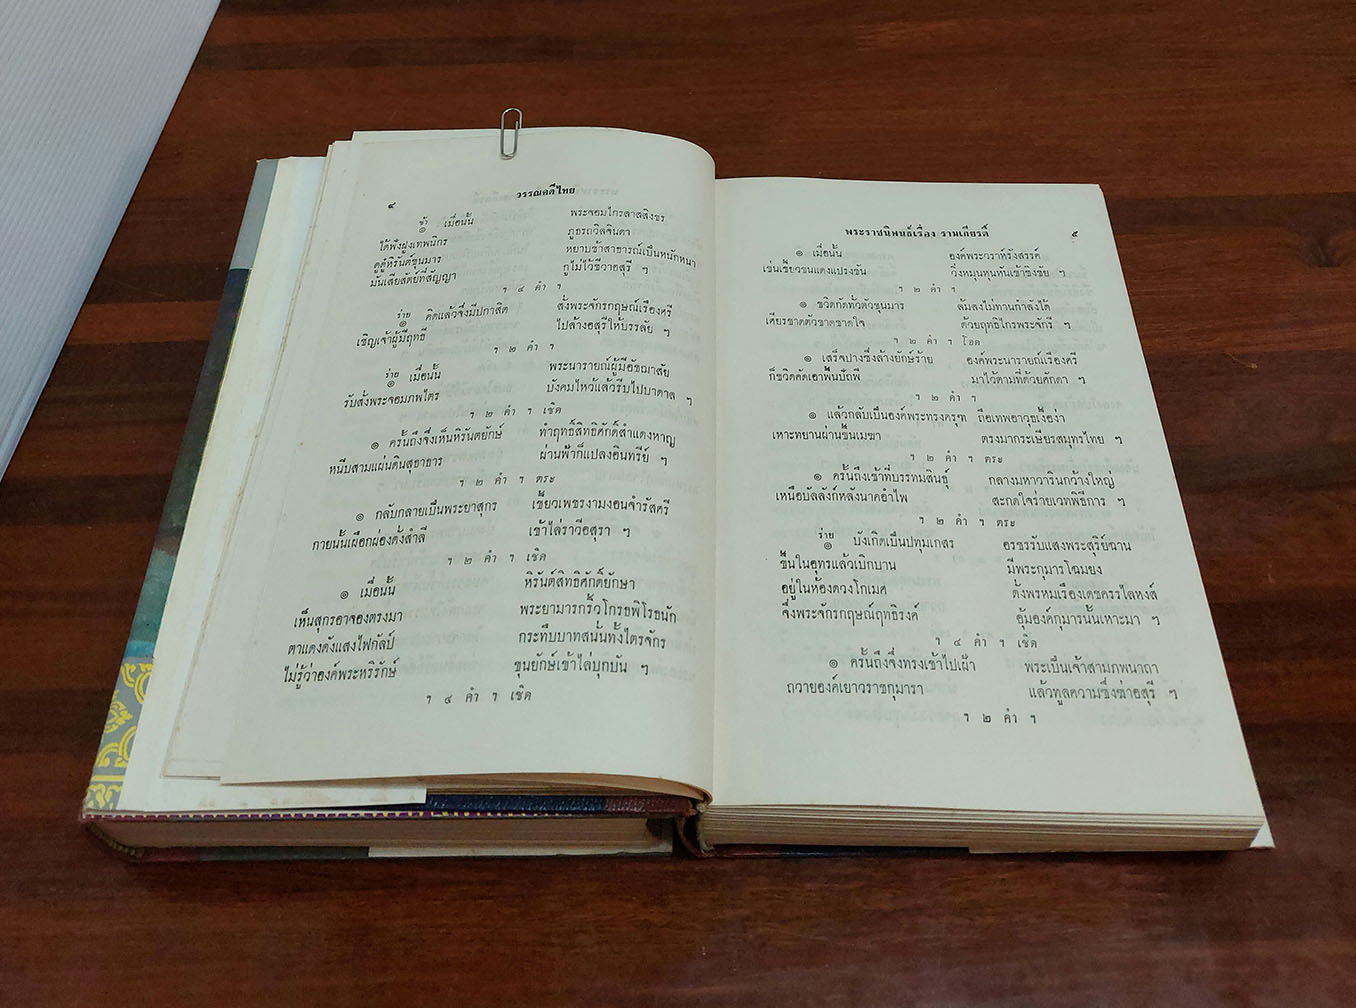 ๔ วรรณคดีไทย
ช้า
๏ เมื่อนั้น พระจอมไกรลาสสิงขร
ได้ฟังฝูงเทพนิกร ภูธรถวิลจินดา
ดูดู๋หิรันต์ขุนมาร หยาบช้าสาธารณ์เป็นหนักหนา
มันเสียสัตย์ที่สัญญา กูไม่ไว้ชีวาอสุรี ฯ
ฯ ๔ คำ ฯ
ร่าย
๏ คิดแล้วจึ่งมีปกาสิต สั่งพระจักรกฤษณ์เรืองศรี
เชิญเจ้าผู้มีฤทธี ไปล้างอสุรีให้บรรลัย ฯ
ฯ ๒ คำ ฯ
ร่าย
๏ เมื่อนั้น พระนารายณ์ผู้มีอัชฌาสัย
รับสั่งพระจอมภพไตร บังคมไหว้แล้วรีบไปบาดาล ฯ
ฯ ๒ คำ ฯ เชิด
๏ ครั้นถึงจึ่งเห็นหิรันตยักษ์ ทำฤทธิ์สิทธิศักดิ์สำแดงหาญ
หนีบสามแผ่นดินสุธาธาร ผ่านฟ้าก็แปลงอินทรีย์ ฯ
ฯ ๒ คำ ฯ ตระ
๏ กลับกลายเป็นพระยาสุกร เขี้ยวเพชรงามงอนจำรัสศรี
กายนั้นเผือกผ่องดั่งสำลี เข้าไล่ราวีอสุรา ฯ
ฯ ๒ คำ ฯ เชิด
๏ เมื่อนั้น หิรันต์สิทธิศักดิ์ยักษา
เห็นสุกรอาจองตรงมา พระยามารกริ้วโกรธพิโรธนัก
ตาแดงดั่งแสงไฟกัลป์ กระทืบบาทสนั่นทั้งไตรจักร
ไม่รู้ว่าองค์พระหริรักษ์ ขุนยักษ์เข้าไล่บุกบัน ฯ
ฯ ๔ คำ ฯ เชิด
พระราชนิพนธ์เรื่อง รามเกียรติ์ ๕
๏ เมื่อนั้น องค์พระวราห์รังสรรค์
เข่นเขี้ยวขนแดงแปรงชัน วิ่งหมุนหุนหันเข้าชิงชัย ฯ
ฯ ๒ คำ ฯ
๏ ขวิดกัดทั่วตัวขุนมาร ล้มลงไม่ทานกำลังได้
เศียรขาดตัวขาดขาดใจ ด้วยฤทธิไกรพระจักรี ฯ
ฯ ๒ คำ ฯ โอด
๏ เสร็จปางซึ่งล้างยักษ์ร้าย องค์พระนารายณ์เรืองศรี
ก็ขวิดคัดเอาพื้นปัถพี มาไว้ตามที่ด้วยศักดา ฯ
ฯ ๒ คำ ฯ
๏ แล้วกลับเป็นองค์พระทรงครุฑ ถือเทพอาวุธเงื้อง่า
เหาะทยานผ่านขึ้นเมฆา ตรงมากระเษียรสมุทรไทย ฯ
ฯ ๒ คำ ฯ ตระ
๏ ครั้นถึงเข้าที่บรรทมสินธุ์ กลางมหาวารินกว้างใหญ่
เหนือบัลลังก์หลังนาคอำไพ สะกดใจร่ายเวทพิธีการ ฯ
ฯ ๒ คำ ฯ ตระ
ร่าย
๏ บังเกิดเป็นปทุมเกสร อรชรรับแสงพระสุริย์ฉาน
ขึ้นในอุทรแล้วเบิกบาน มีพระกุมารโฉมยง
อยู่ในห้องดวงโกเมศ ดั่งพรหมเรืองเดชครรไลหงส์
จึ่งพระจักรกฤษณ์ฤทธิรงค์ อุ้มองค์กุมารนั้นเหาะมา ฯ
ฯ ๔ คำ ฯ เชิด
๏ ครั้นถึงจึ่งทรงเข้าไปเฝ้า พระเป็นเจ้าสามภพนาถา
ถวายองค์เยาวราชกุมารา แล้วทูลความซึ่งฆ่าอสุรี ฯ
ฯ ๒ คำ ฯ